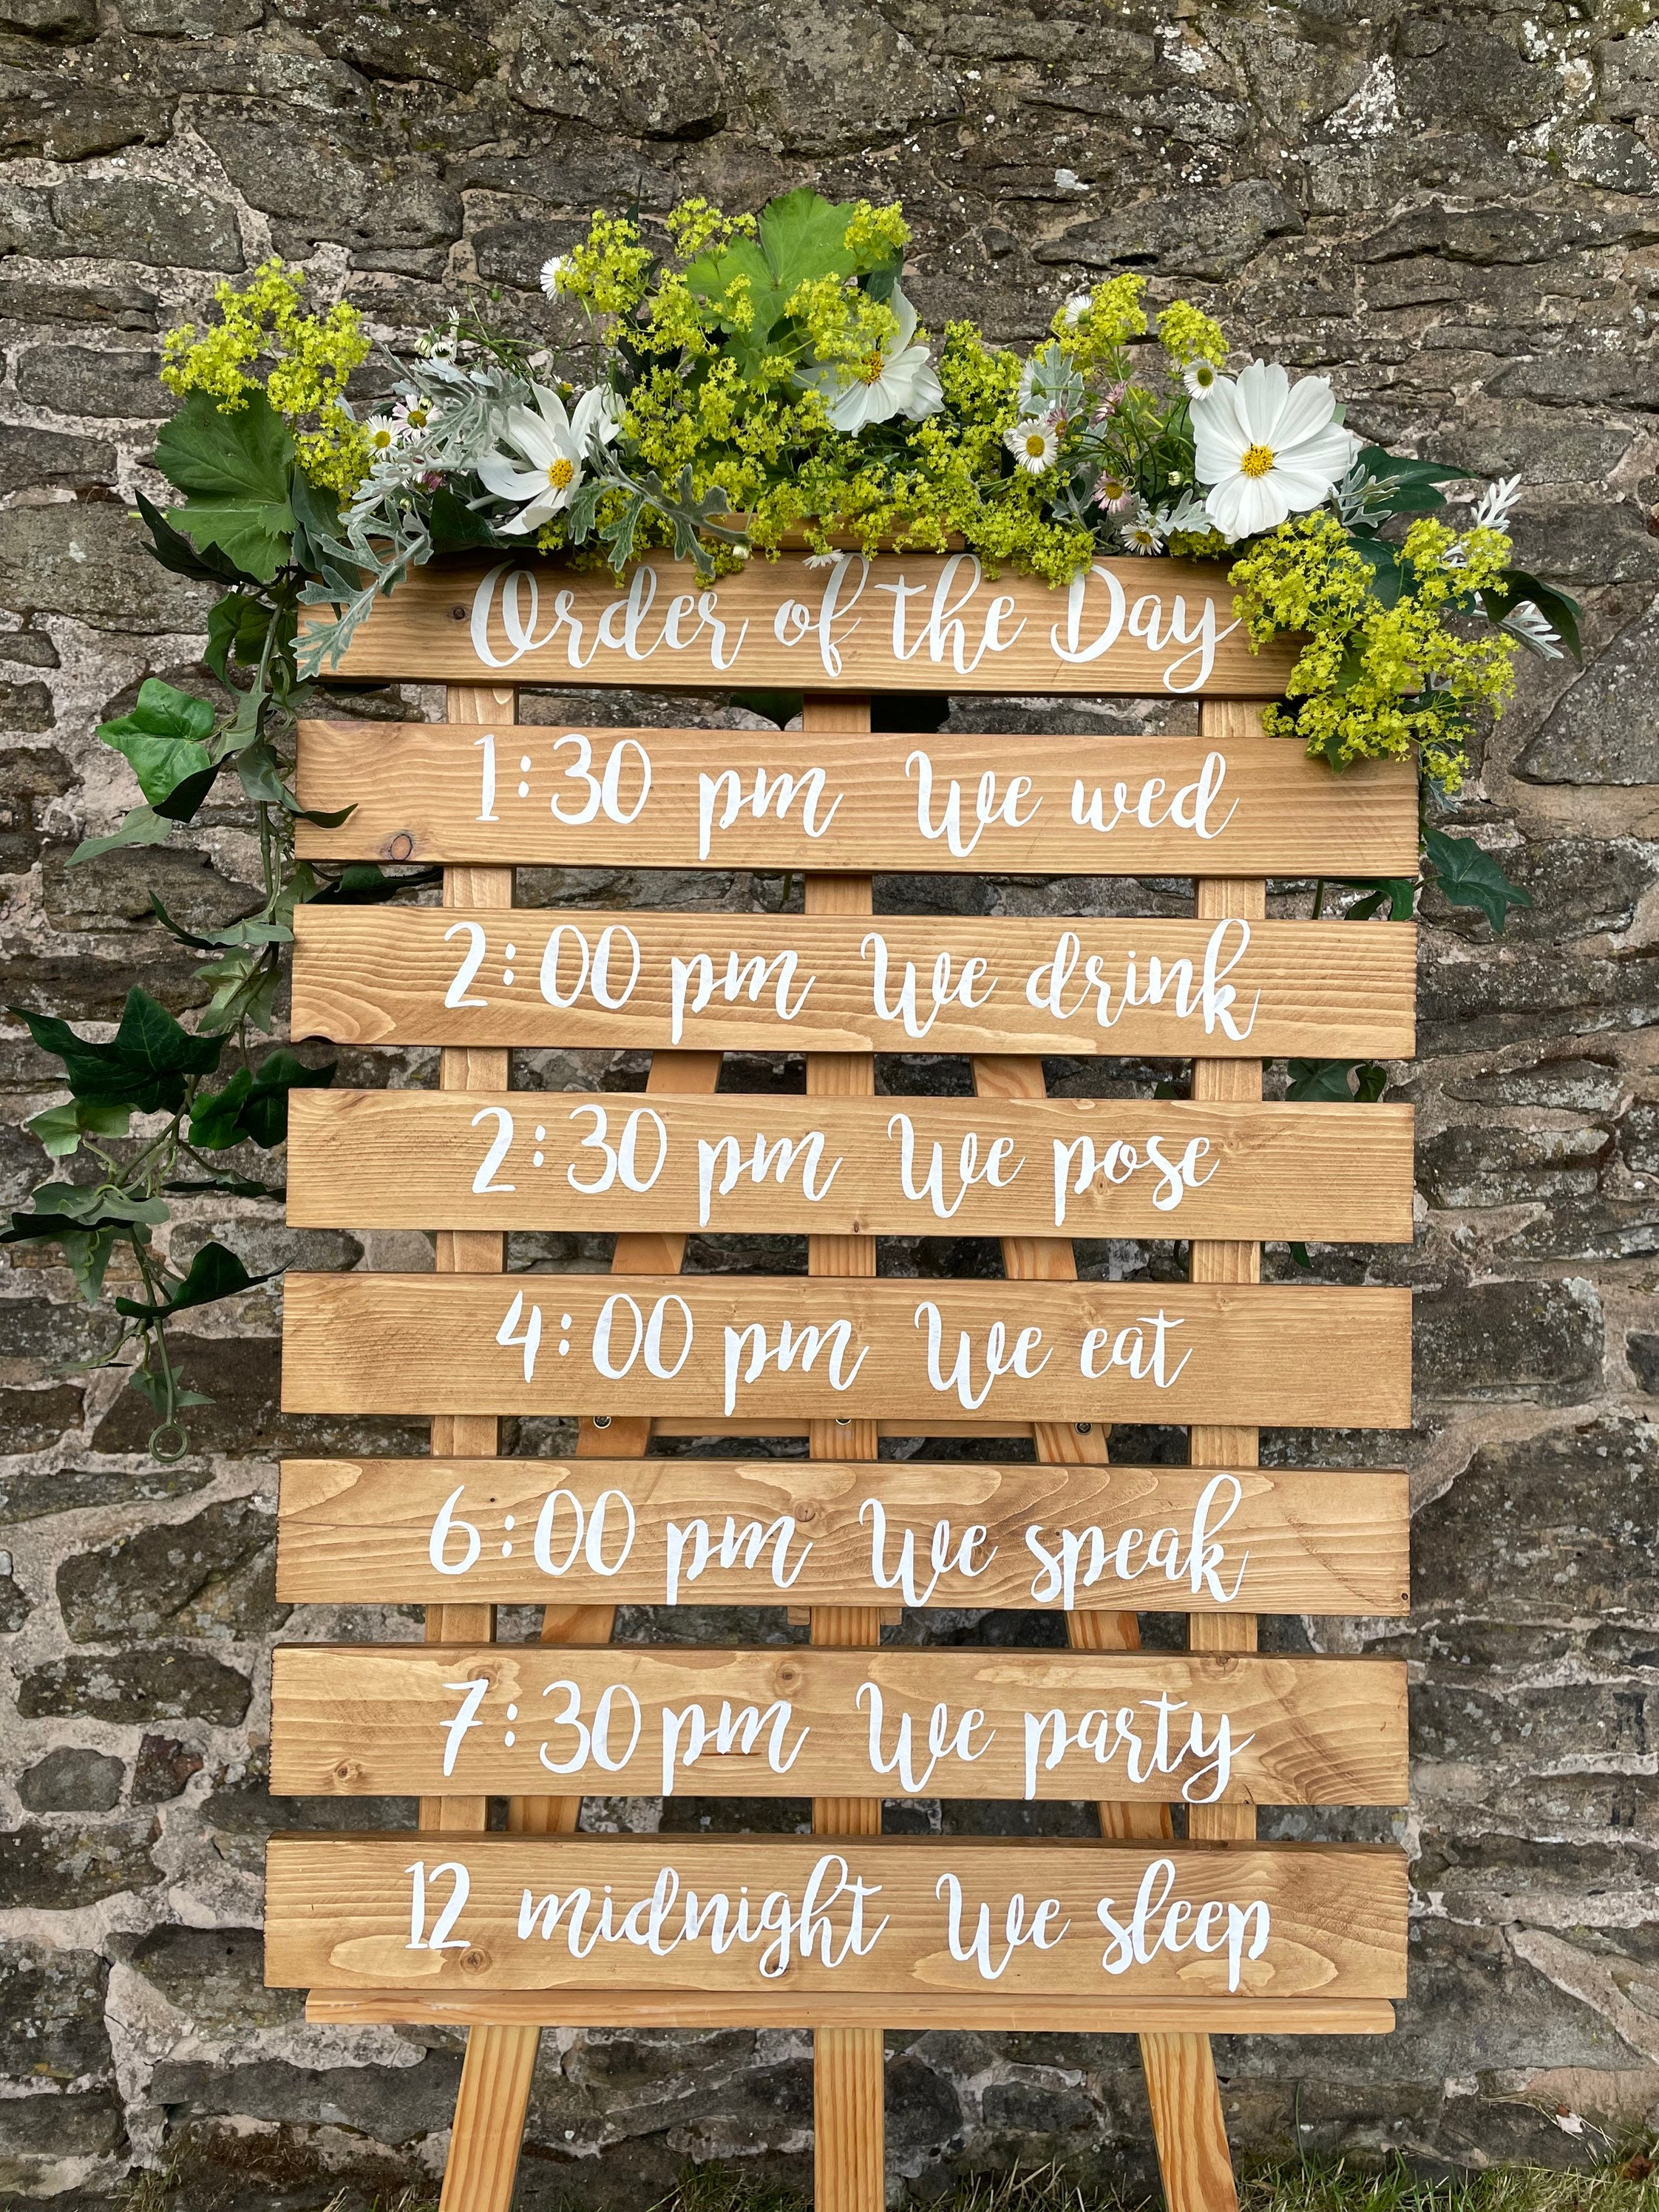 Order of the Day
1:30 pm We wed
2:00 pm We drink
2:30 pm We pose
4:00 pm We eat
6:00 pm We speak
7:30 pm We party
12 midnight We sleep